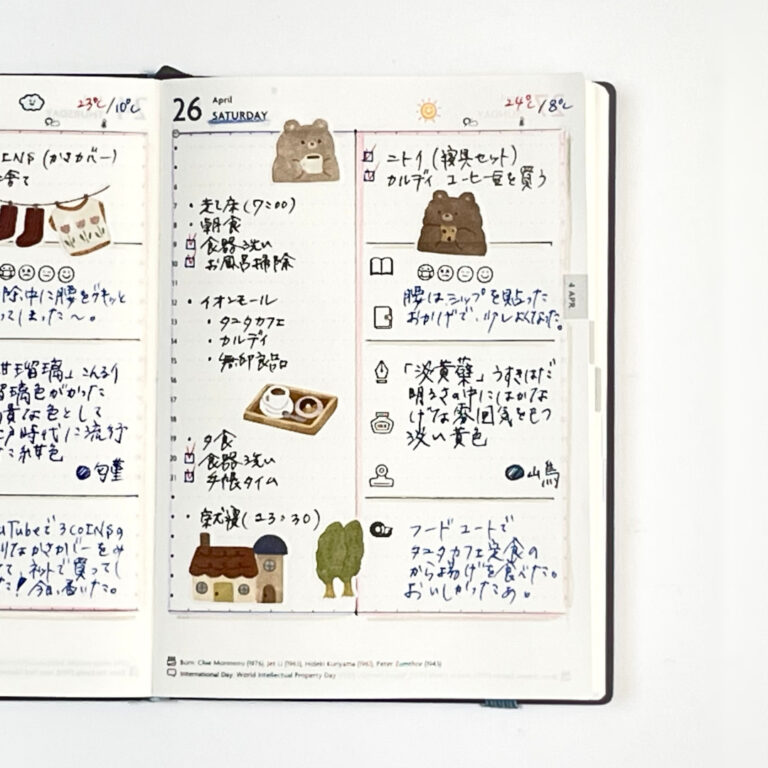 23℃/10℃
(かさカバー)
除中に腰をグキッと
ってしまった〜。
瑠璃」こんるり
瑠璃色がかった
貴な色として
戸時代に流行
匂菫
YouTubeで3COINSの
なかさカバーをみ
て、ネットで買ってし
た!今日、届いた。
26 April
SATURDAY
24℃/8℃
・起床(7:00)
・朝食
食器洗い
お風呂掃除
・イオンモール
・タニタカフェ
・カルディ
・無印良品
・夕食
食器洗い
手帳タイム
・就寝(23:30)
ニトリ(寝具セット)
カルディ コーヒー豆を買う
腰はシップを貼った
おかげで、少しよくなった。
「淡黄蘗」うすきはだ
明るさの中にはかな
げな雰囲気をもつ
淡い黄色
山鳥
フードコートで
タニタカフェ定食の
から揚げを食べた。
おいしかったぁ。
4 APR
Born: Clise Morimoto (1976), Jet Li (1963), Hideki Kuriyama (1961), Peter Zumthor (1943)
International Day: World Intellectual Property Day